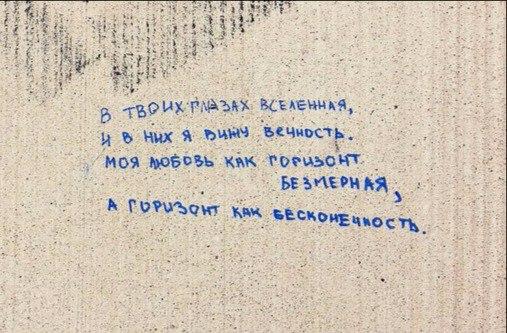 В ТВОИХ ГЛАЗАХ ВСЕЛЕННАЯ,
И В НИХ Я ВИЖУ ВЕЧНОСТЬ.
МОЯ ЛЮБОВЬ КАК ГОРИЗОНТ
БЕЗМЕРНАЯ,
А ГОРИЗОНТ КАК БЕСКОНЕЧНОСТЬ.